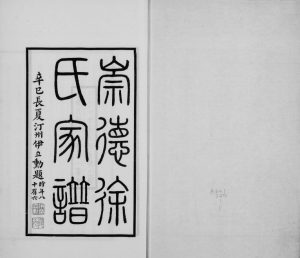 崇德徐
氏家譜
辛巳長夏汀州伊立勳題
時年八
十有六